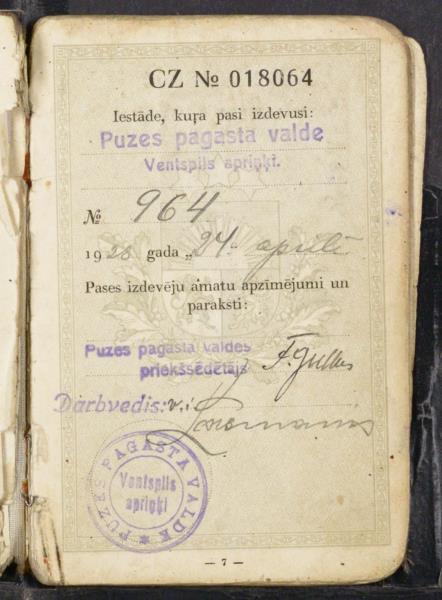 CZ № 018064
Iestāde, kuŗa pasi izdevusi:
Puzes pagasta valde
Ventspils apriņķī.
№ 964
1928 gada „24. aprīlī
Pases izdevēju amatu apzīmējumi un
paraksti:
Puzes pagasta valdes
priekšsēdētājs
Darbvedis: v. i.
PUZES PAGASTA VALDE
Ventspils
apriņķī
— 7 —